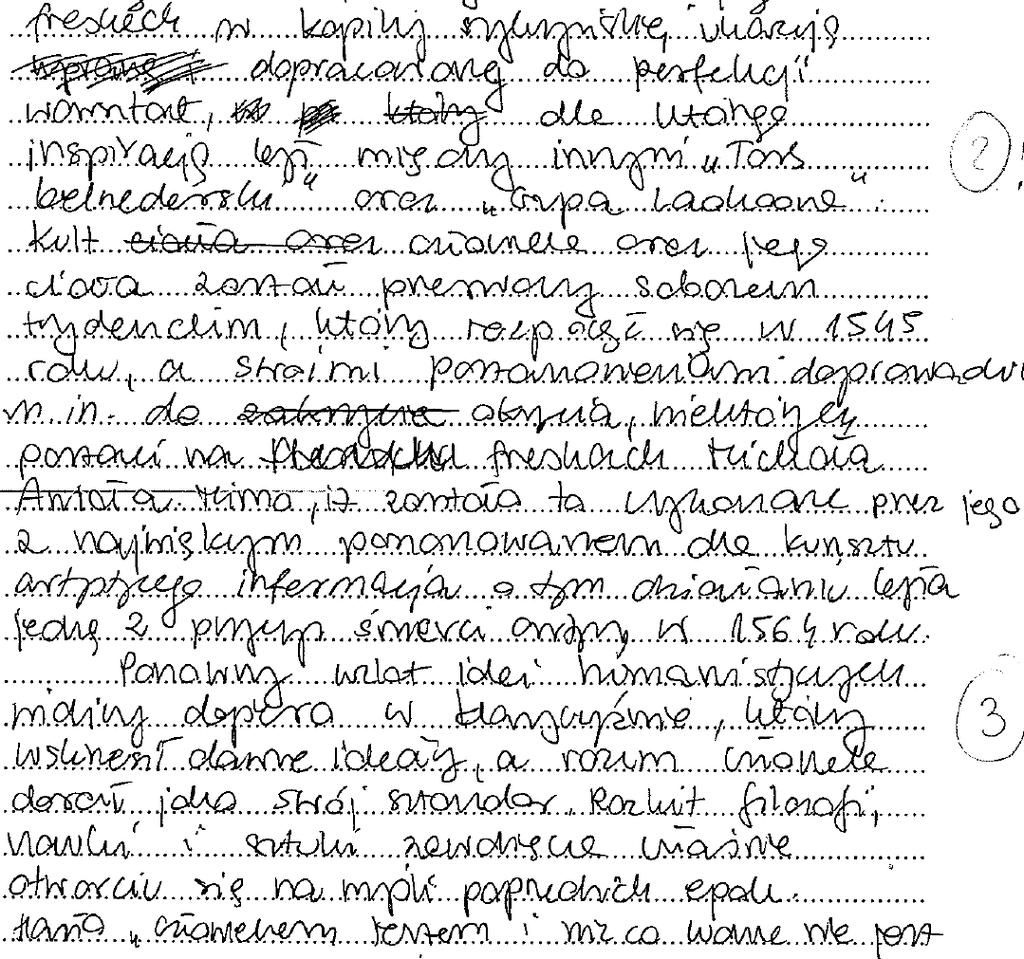 freskach w kaplicy sykstyńskiej ukazują
dopracowany do perfekcji
warsztat, który dla którego
inspiracją był między innymi „Tors
belwederski" oraz „Grupa Laokoona".
Kult ciała oraz człowieka oraz jego
ciała został przerwany soborem
trydenckim, który rozpoczął się w 1545
roku, a swoimi postanowieniami doprowadził
m.in. do zakrycia okrycia, niektórych
postaci na freskach Michała
Anioła. Mimo, iż została to wykonane przez jego
z największym poszanowaniem dla kunsztu
artysty informacja o tym działaniu była
jedną z przyczyn śmierci artysty w 1564 roku.
Ponowny wzlot idei humanistycznych
widzimy dopiero w klasycyzmie, który
wskrzesił dawne ideały, a rozum człowieka
dorzucił jako swój sztandar. Rozkwit filozofii,
nauki i sztuki zawdzięcza właśnie
otwarciu się na myśli poprzednich epok.
Hasło „człowiekiem jestem i nic co ludzkie nie jest
2
3